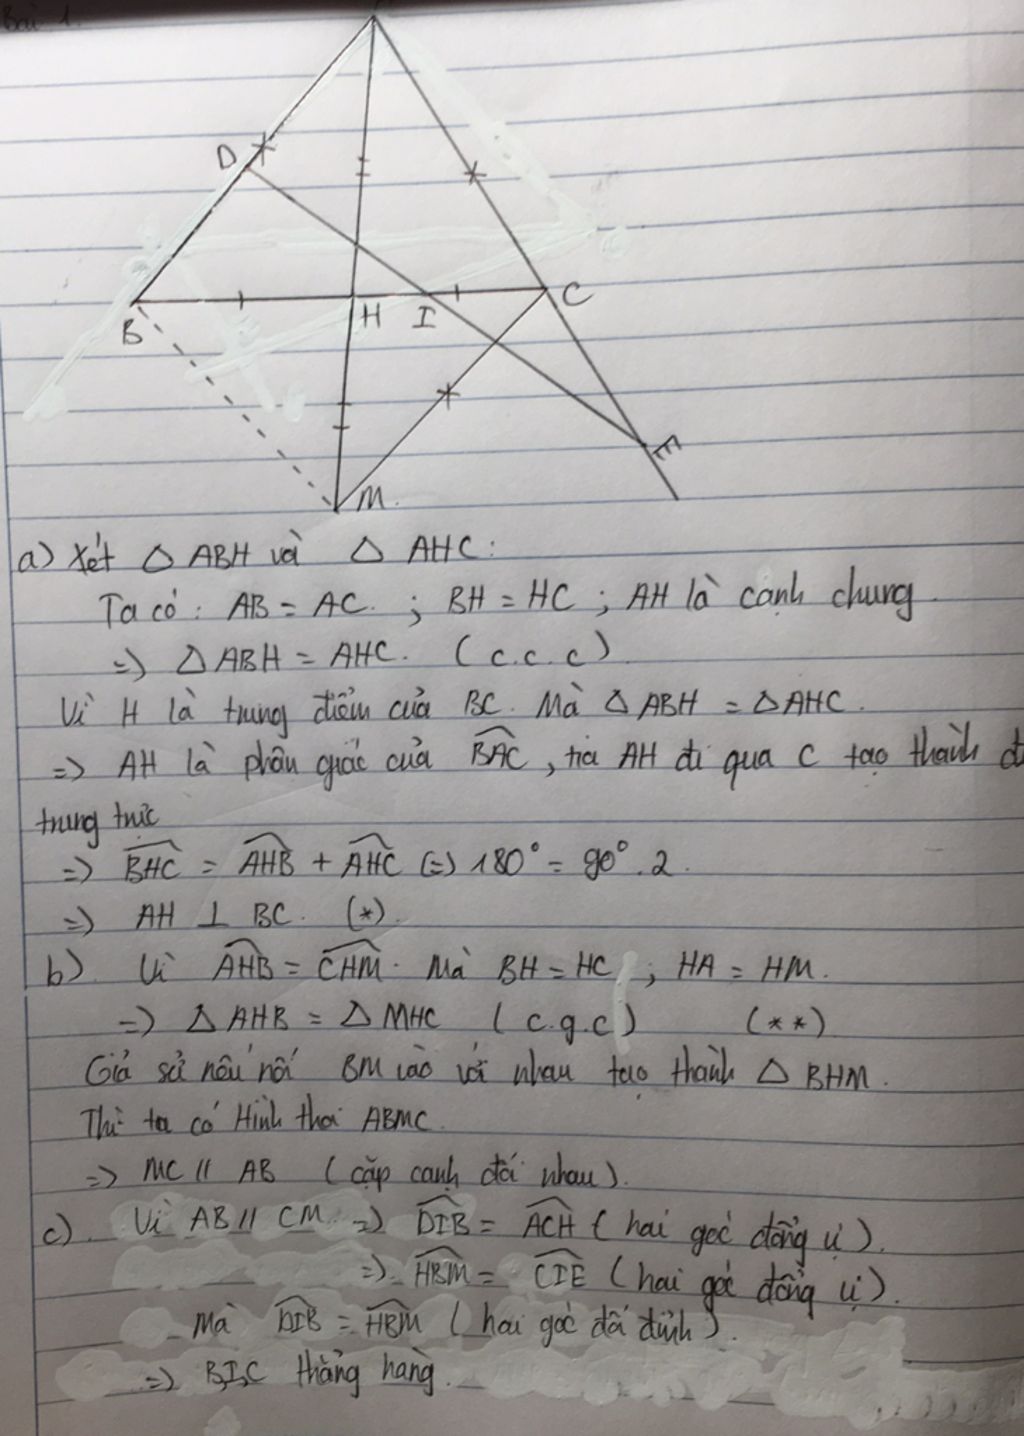 Bài 1.
D
B
H
I
C
E
M.
a) Xét △ ABH và △ AHC:
Ta có: AB = AC. ; BH = HC ; AH là cạnh chung.
=> △ ABH = AHC. (c.c.c)
Vì H là trung điểm của BC. Mà △ ABH = △ AHC.
=> AH là phân giác của BAC, tia AH đi qua C tạo thành đ
trung trực
=> BHC = AHB + AHC (=) 180° = 90°.2.
=> AH ⊥ BC. (*)
b). Vì AHB = CHM. Mà BH = HC ; HA = HM.
=> △ AHB = △ MHC (c.g.c) (**)
Giả sử nếu nối BM vào với nhau tạo thành △ BHM.
Thì ta có Hình thoi ABMC.
=> MC // AB (cặp cạnh đối nhau).
c). Vì AB // CM => DIB = ACH (hai góc đồng vị).
=> HBM = CIE (hai góc đồng vị).
Mà DIB = HBM (hai góc đối đỉnh).
=> B,I,C thẳng hàng.